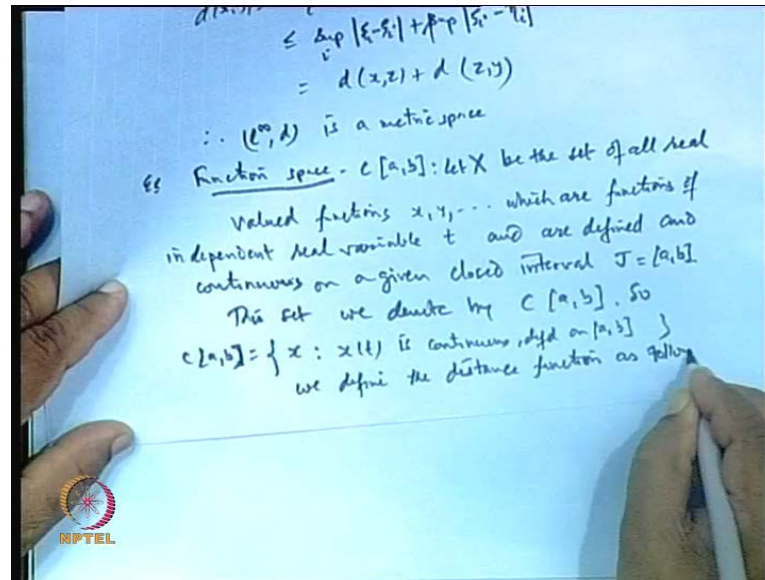 d(x,y)
≤ Sup_i |ξi-ζi| + Sup |ζi-ηi|
= d(x,z) + d(z,y)
∴ (l^∞, d) is a metric space
Function space - C[a,b]: Let X be the set of all real
valued functions x, y, ... which are functions of
independent real variable t and are defined and
continuous on a given closed interval J=[a,b]
This set we denote by C[a,b]. So
C[a,b] = { x : x(t) is continuous, defd on [a,b] }
we define the distance function as follows
NPTEL